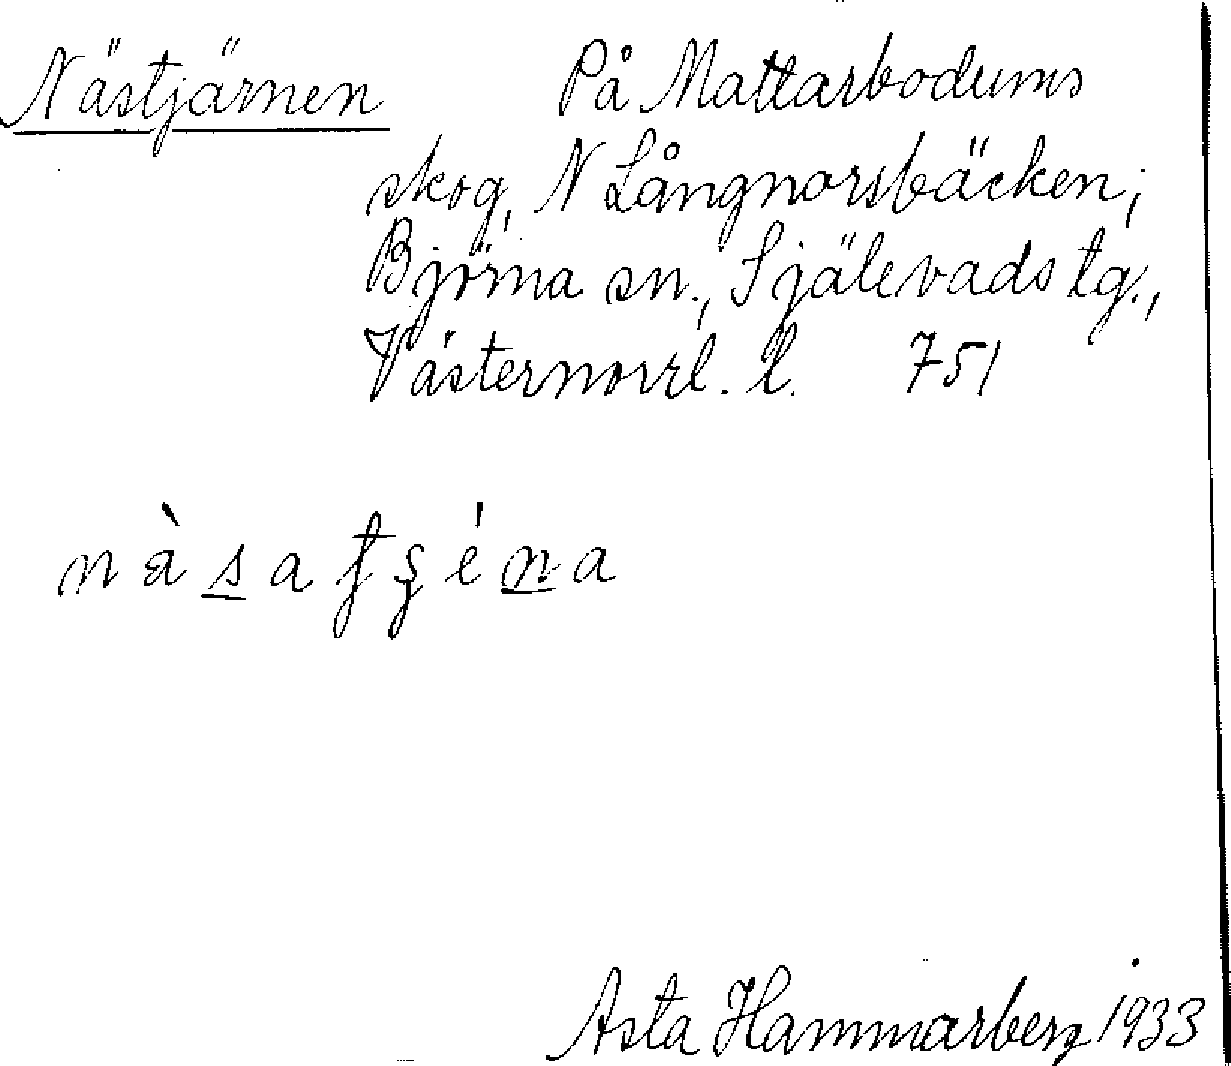 Nästjärnen På Mattarbodums
skog, N Långnorsbäcken;
Björna sn., Själevads tg.,
Västernorrl. l. 751
nàsatşéna
Asta Hammarberg 1933